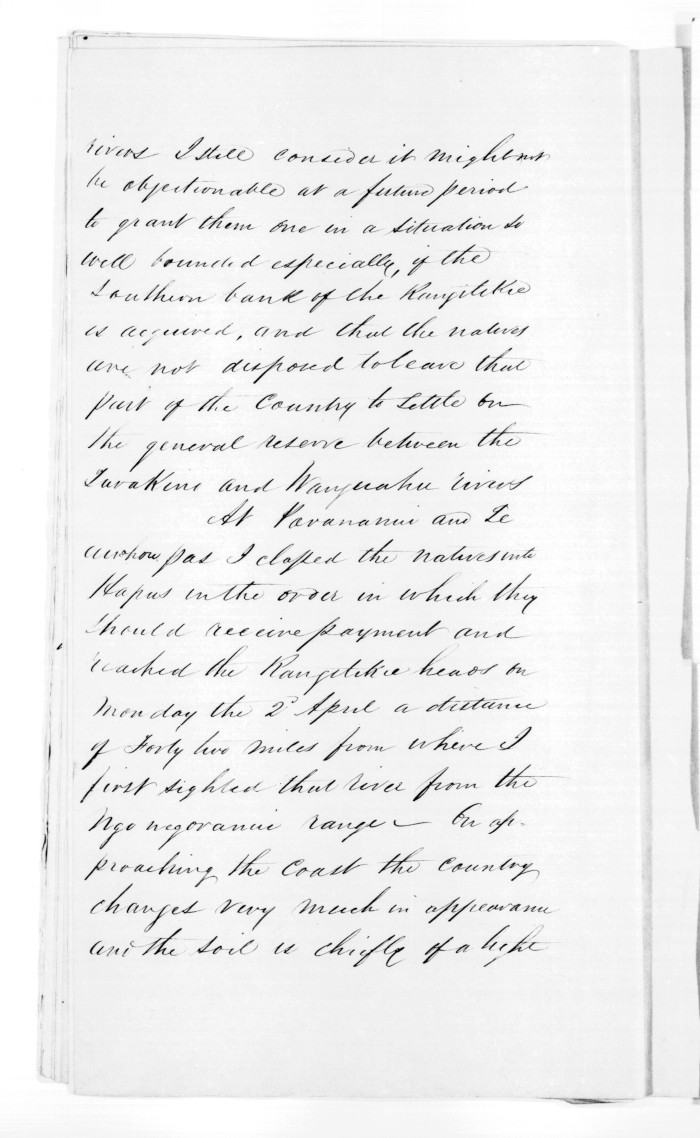 rivers I still consider it might not
be objectionable at a future period
to grant them one in a situation so
well bounded especially, if the
Southern bank of the Rangitikie
is acquired, and that the natives
are not disposed to leave that
part of the Country to settle on
the general reserve between the
Turakine and Wanguahu rivers
At Parananui and Te
pas I classed the natives into
Hapus in the order in which they
should receive payment and
reached the Rangitikie heads on
Monday the 2d April a distance
of Forty two miles from where I
first sighted that river from the
range — On ap-
proaching the Coast the Country
changes very much in appearance
and the soil is chiefly of a light